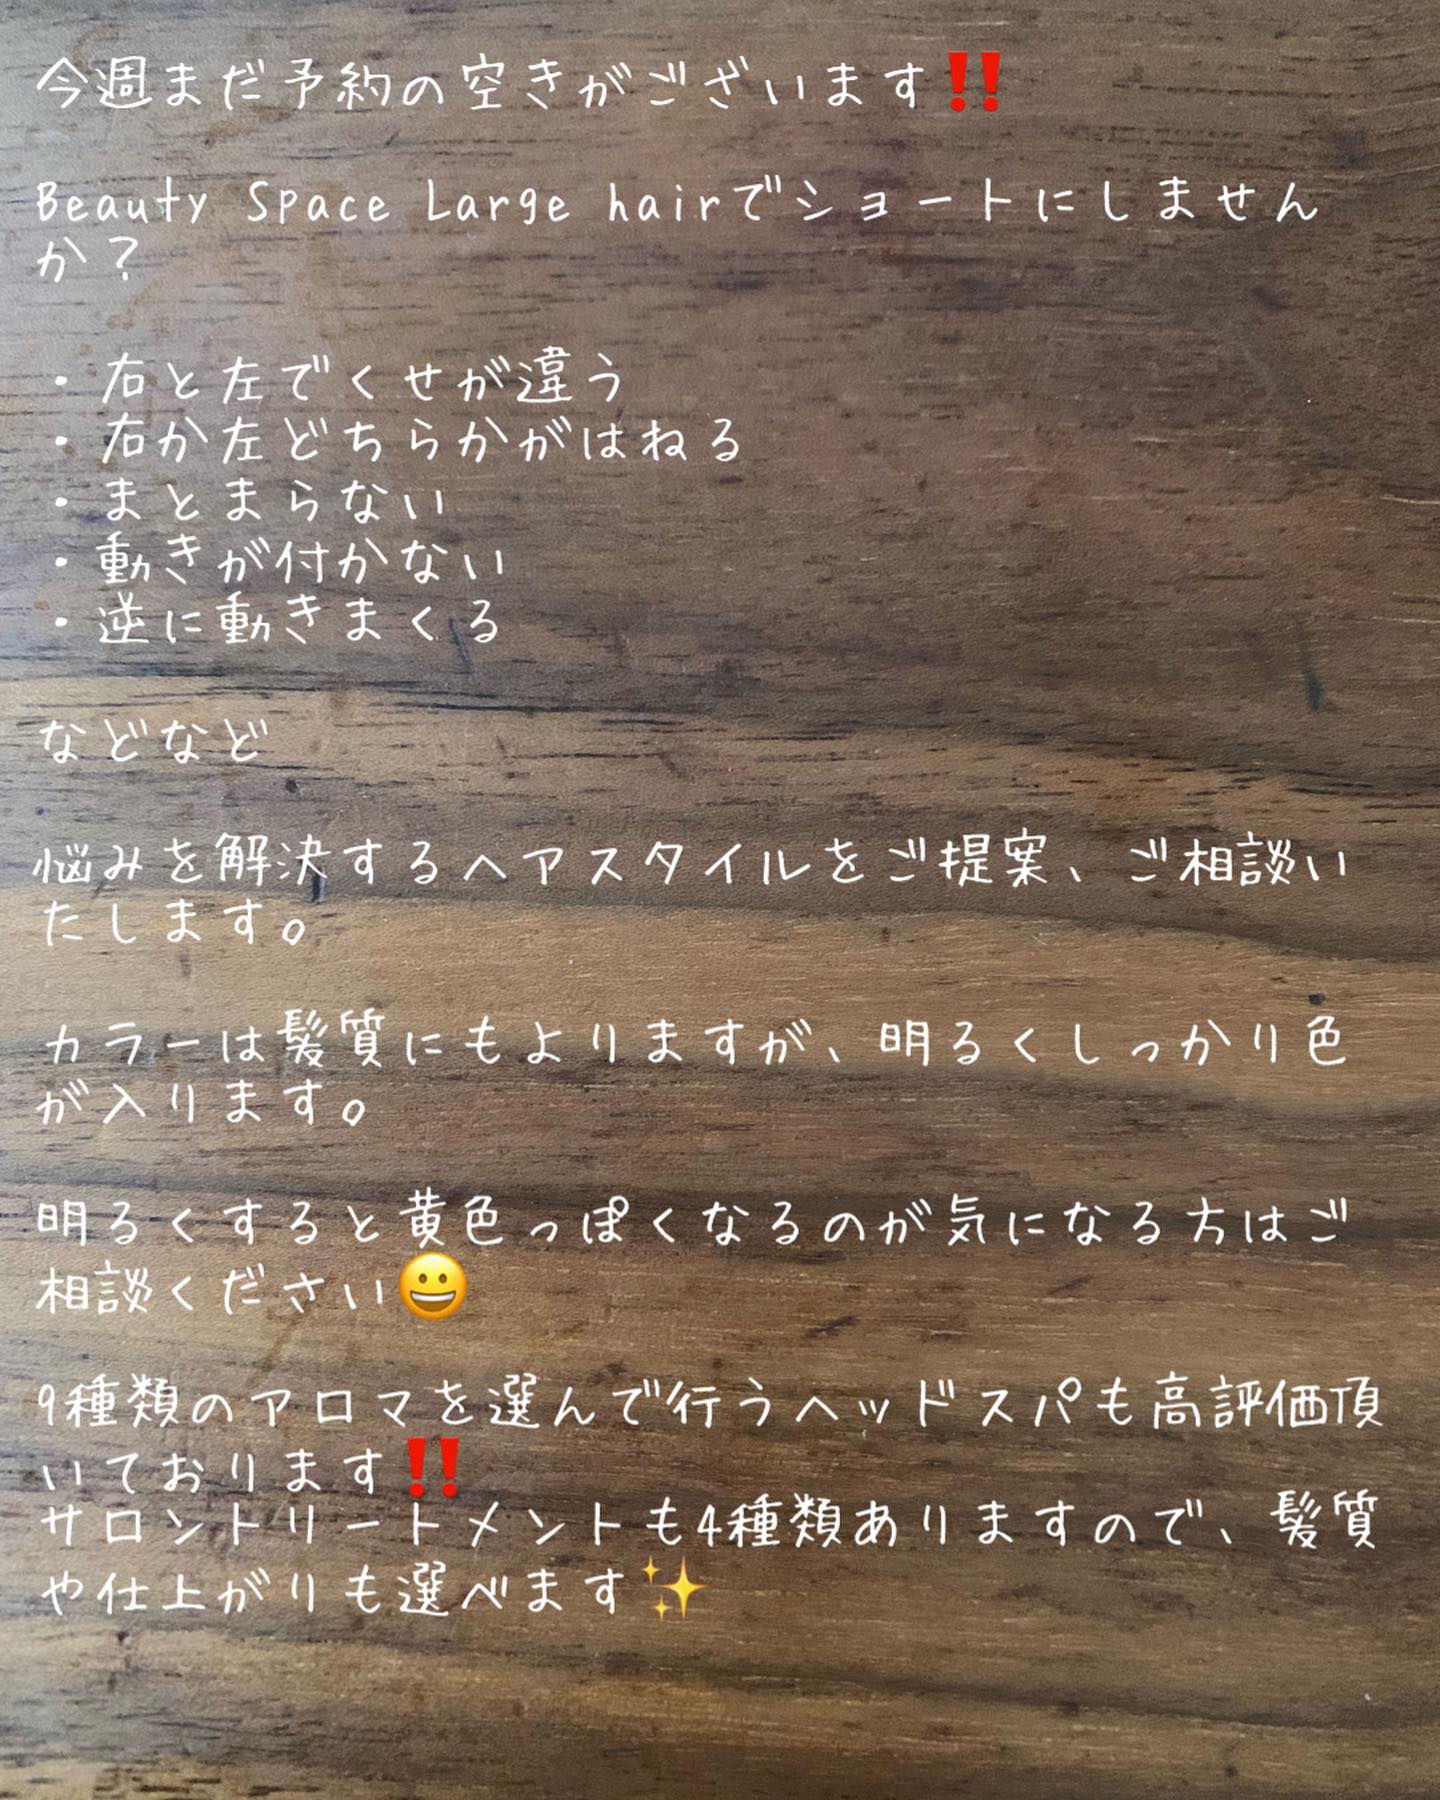 今週まだ予約の空きがございます‼️
Beauty Space Large hairでショートにしません
か？
・右と左でくせが違う
・右か左どちらかがはねる
・まとまらない
・動きが付かない
・逆に動きまくる
などなど
悩みを解決するヘアスタイルをご提案、ご相談い
たします。
カラーは髪質にもよりますが、明るくしっかり色
が入ります。
明るくすると黄色っぽくなるのが気になる方はご
相談ください😀
9種類のアロマを選んで行うヘッドスパも高評価頂
いております‼️
サロントリートメントも4種類ありますので、髪質
や仕上がりも選べます✨